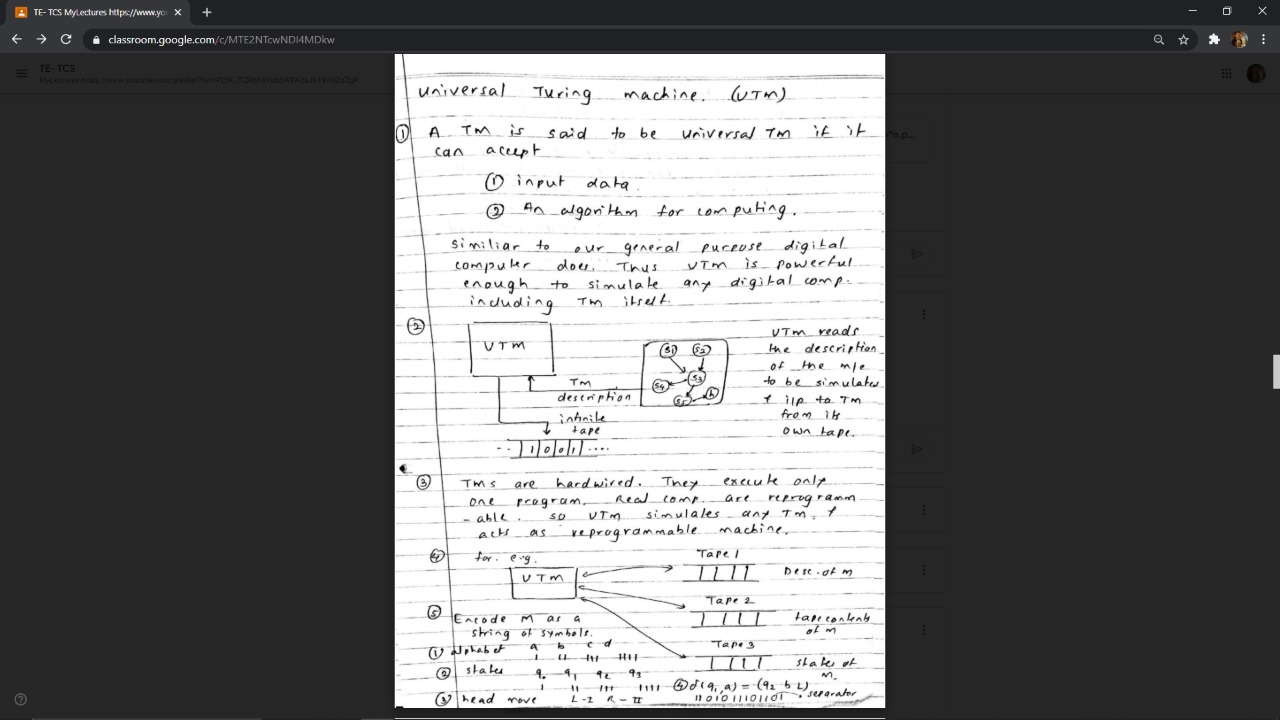 TE- TCS MyLectures https://www.yo
classroom.google.com/c/MTE2NTcwNDI4MDkw
TE- TCS
Universal Turing machine. (UTM)
① A TM is said to be universal TM if it
can accept
① input data
② An algorithm for computing.
similiar to our general purpose digital
computer does. Thus UTM is powerful
enough to simulate any digital comp.
including TM itself.
②
UTM
S1 S2
S3
S4
S5 h
TM
description
infinite
tape
-- 1 0 0 1 ....
UTM reads
the description
of the m/c
to be simulated
& i/p to TM
from its
own tape.
③ TMs are hardwired. They execute only
one program. Real comp. are reprogramm
-able. so UTM simulates any TM. &
acts as reprogrammable machine.
④ for. e.g.
UTM
Tape 1
Desc. of M
Tape 2
tape contents
of M
Tape 3
states of
M.
⑤ Encode M as a
string of symbols.
① alphabet a b c d
I II III IIII
② states q0 q1 q2 q3
I II III IIII
③ head move L-I R-II
④ δ(q1, a) = (q2 b L)
1101011101101 separator